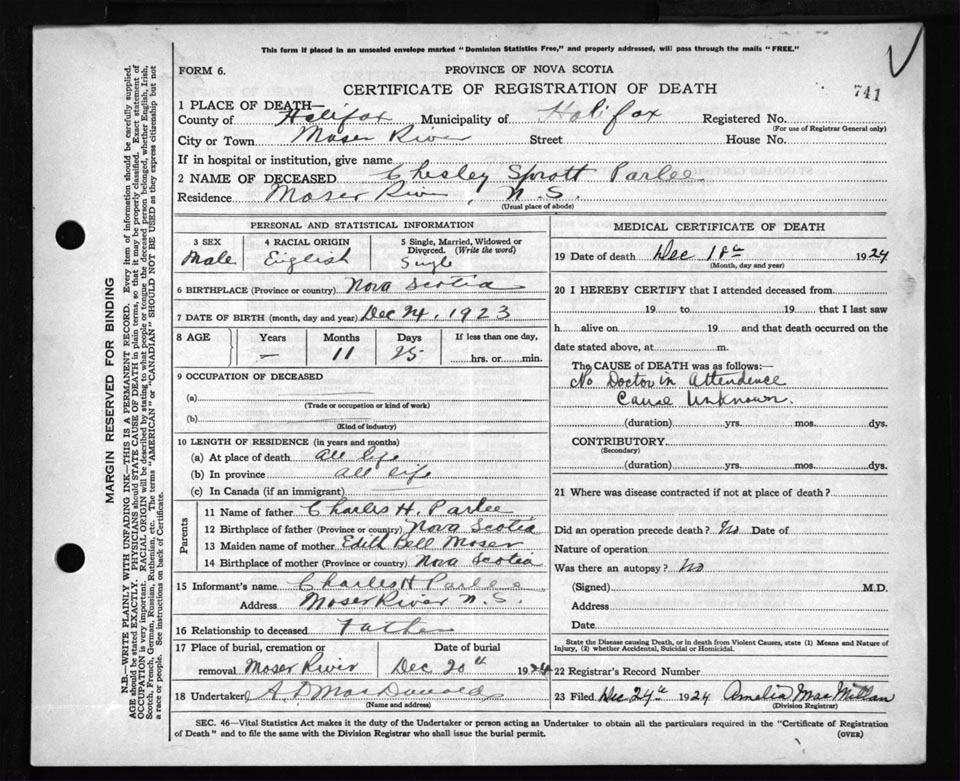 This form if placed in an unsealed envelope marked "Dominion Statistics Free," and properly addressed, will pass through the mails "FREE."
FORM 6.
PROVINCE OF NOVA SCOTIA
CERTIFICATE OF REGISTRATION OF DEATH
741
1 PLACE OF DEATH—
County of Halifax Municipality of Halifax Registered No.
(For use of Registrar General only)
City or Town Moser River Street House No.
If in hospital or institution, give name
2 NAME OF DECEASED Chesley Sprott Parlee
Residence Moser River, N.S.
(Usual place of abode)
PERSONAL AND STATISTICAL INFORMATION
3 SEX
Male
4 RACIAL ORIGIN
English
5 Single, Married, Widowed or Divorced. (Write the word)
Single
6 BIRTHPLACE (Province or country) Nova Scotia
7 DATE OF BIRTH (month, day and year) Dec 24, 1923
8 AGE Years Months Days If less than one day,
— 11 25 hrs. or min.
9 OCCUPATION OF DECEASED
(a)
(Trade or occupation or kind of work)
(b)
(Kind of industry)
10 LENGTH OF RESIDENCE (in years and months)
(a) At place of death all life
(b) In province all life
(c) In Canada (if an immigrant)
Parents
11 Name of father Charles H. Parlee
12 Birthplace of father (Province or country) Nova Scotia
13 Maiden name of mother Edith Bell Moser
14 Birthplace of mother (Province or country) Nova Scotia
15 Informant's name Charles H Parlee
Address Moser River N.S.
16 Relationship to deceased Father
17 Place of burial, cremation or Date of burial
removal Moser River Dec 20th 1924
18 Undertaker A D MacDonald
(Name and address)
MEDICAL CERTIFICATE OF DEATH
19 Date of death Dec 18th 1924
(Month, day and year)
20 I HEREBY CERTIFY that I attended deceased from
19 to 19 that I last saw
h alive on 19 and that death occurred on the
date stated above, at m.
The CAUSE of DEATH was as follows:—
No Doctor in Attendence
Cause Unknown.
(duration) yrs. mos. dys.
CONTRIBUTORY
(Secondary)
(duration) yrs. mos. dys.
21 Where was disease contracted if not at place of death?
Did an operation precede death? No Date of
Nature of operation
Was there an autopsy? No
(Signed) M.D.
Address
Date
State the Disease causing Death, or in death from Violent Causes, state (1) Means and Nature of
Injury, (2) whether Accidental, Suicidal or Homicidal.
22 Registrar's Record Number
23 Filed Dec 24th 1924 Amelia MacMillan
(Division Registrar)
SEC. 46—Vital Statistics Act makes it the duty of the Undertaker or person acting as Undertaker to obtain all the particulars required in the "Certificate of Registration
of Death" and to file the same with the Division Registrar who shall issue the burial permit.
(OVER)
MARGIN RESERVED FOR BINDING
N.B.—WRITE PLAINLY WITH UNFADING INK—THIS IS A PERMANENT RECORD. Every item of information should be carefully supplied.
AGE should be stated EXACTLY. PHYSICIANS should STATE CAUSE OF DEATH in plain terms, so that it may be properly classified. Exact statement of
OCCUPATION is very important. RACIAL ORIGIN will be described by stating to what people or tongue the deceased person belonged, whether English, Irish,
Scotch, French, German, Russian, Ruthenian, etc. The terms "AMERICAN" or "CANADIAN" SHOULD NOT BE USED as they express citizenship but not
a race or people. See instructions on back of Certificate.